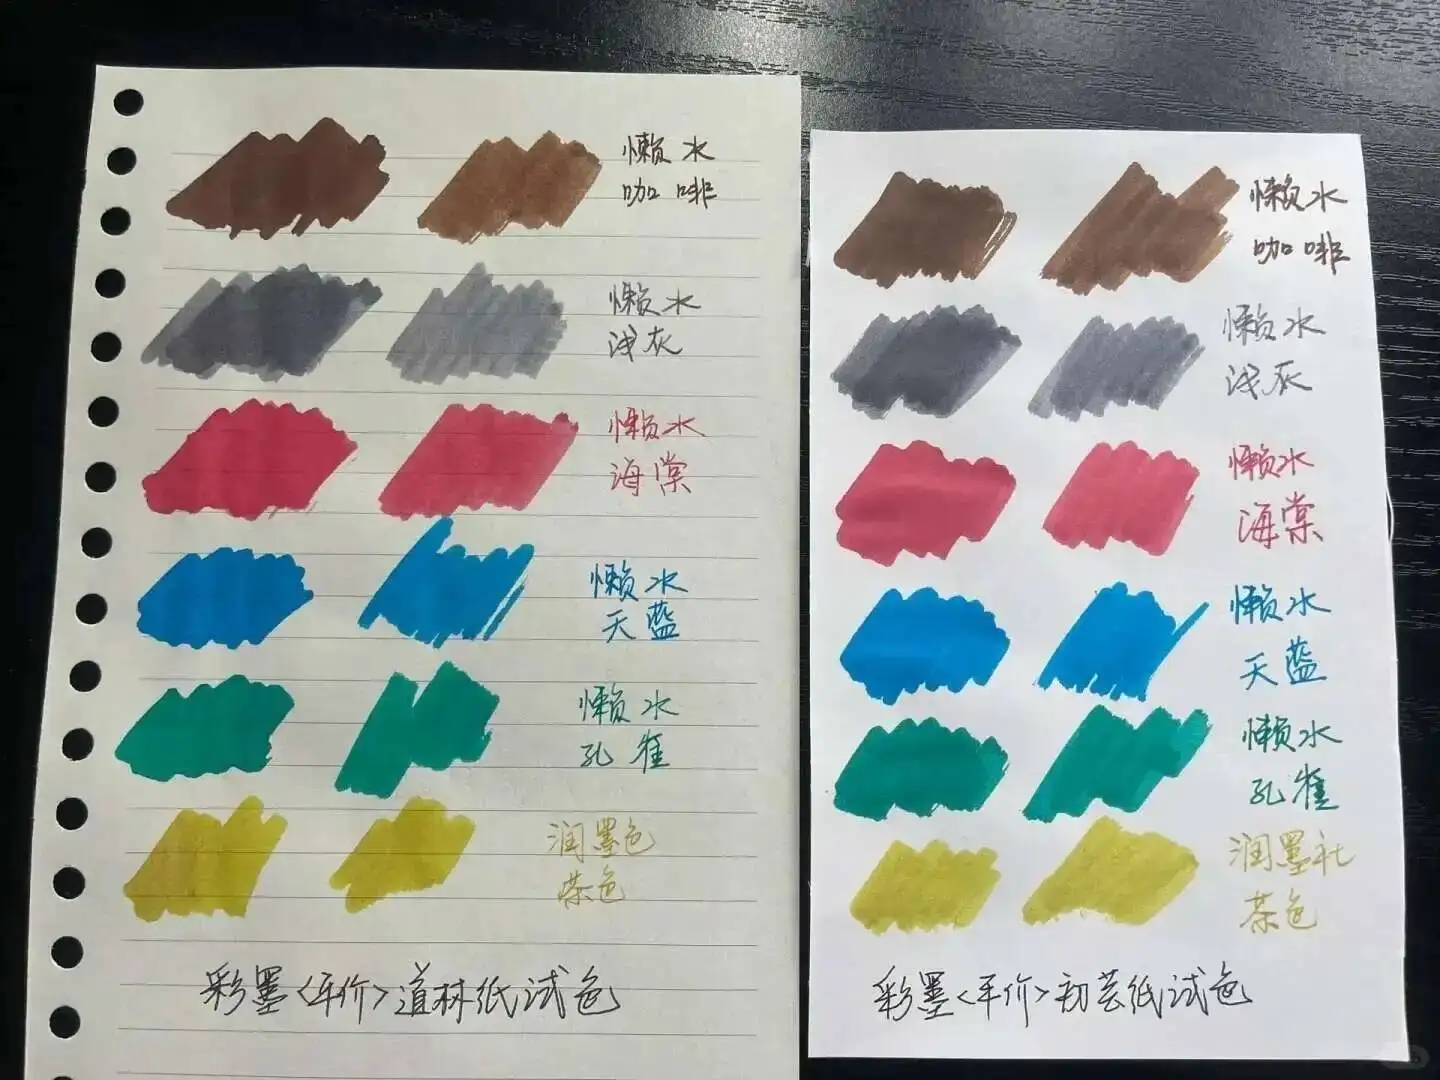 懒水
咖啡
懒水
浅灰
懒水
海棠
懒水
天蓝
懒水
孔雀
润墨色
茶色
彩墨<平价>道林纸试色
懒水
咖啡
懒水
浅灰
懒水
海棠
懒水
天蓝
懒水
孔雀
润墨社
茶色
彩墨<平价>初芸纸试色